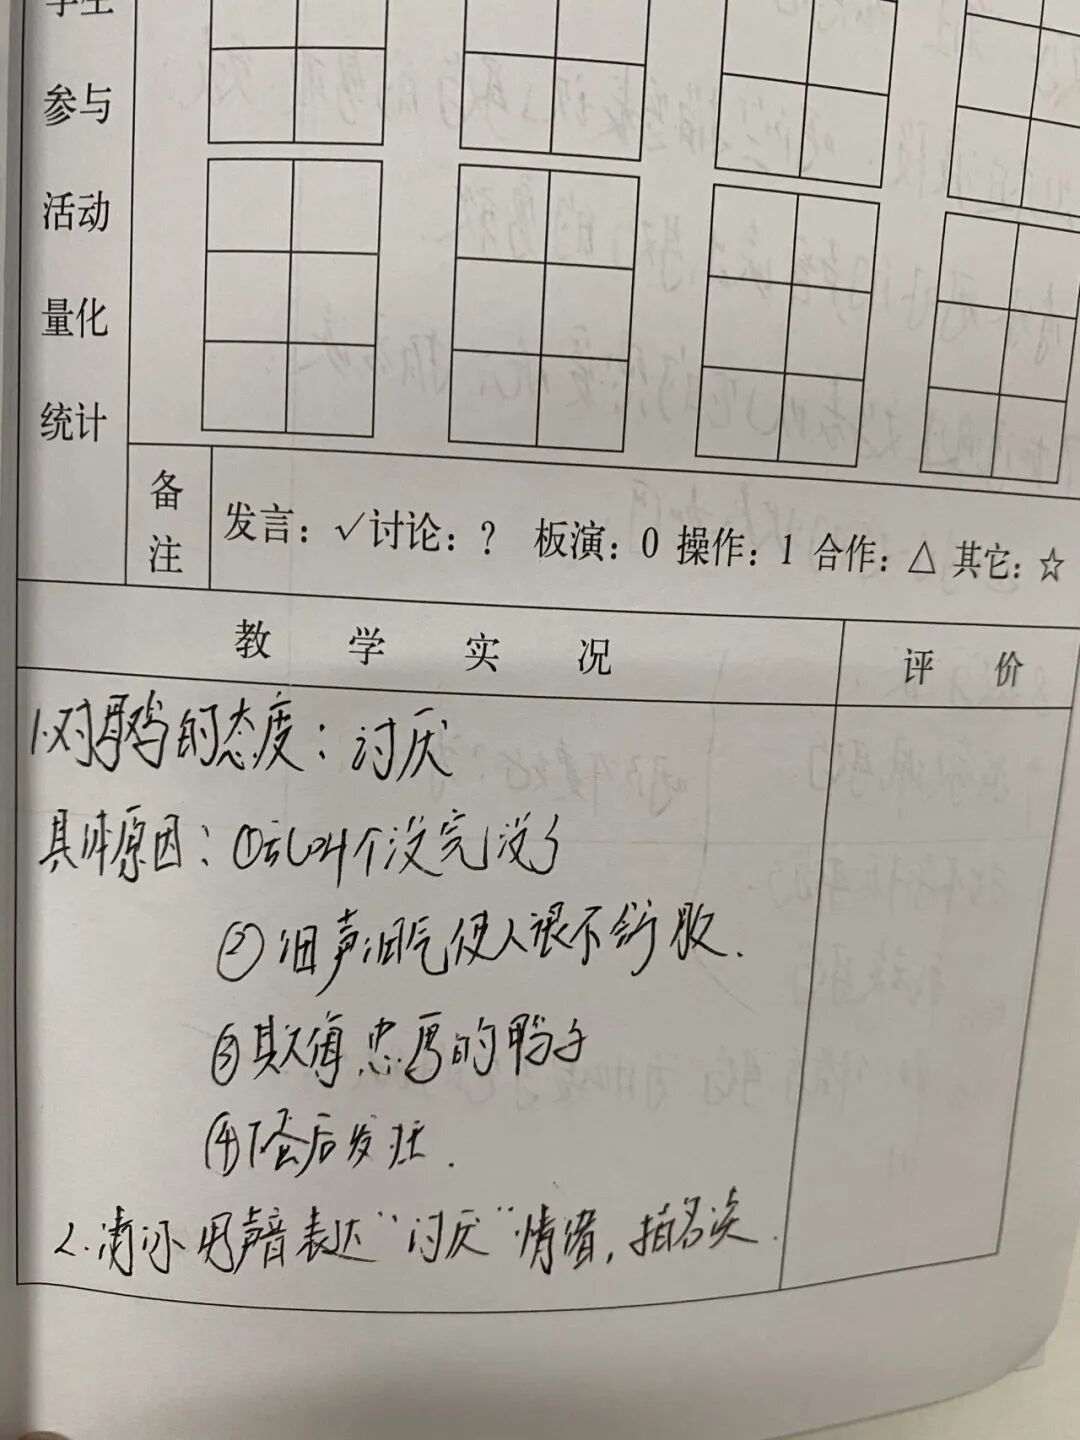 学生
参与
活动
量化
统计
备注
发言：√ 讨论：？ 板演：0 操作：1 合作：△ 其它：☆
教学实况 评价
1.对母鸡的态度：讨厌
具体原因：①乱叫个没完没了
②如声如气使人很不舒服.
③欺侮忠厚的鸭子
④下蛋后发狂.
2.请你用声音表达“讨厌”情绪，指名读.